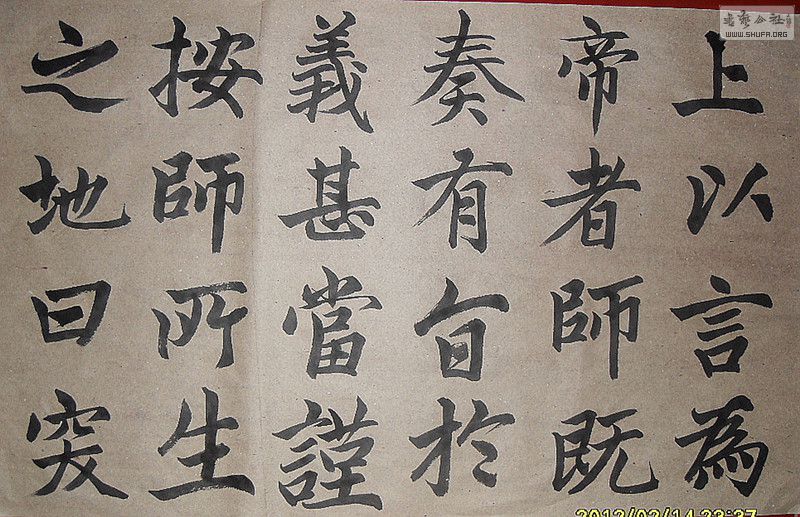 上以言為
帝者師既
奏有旨於
義甚當謹
按師所生
之地曰突
書藝公社
WWW.SHUFA.ORG
2012/02/14 23:37